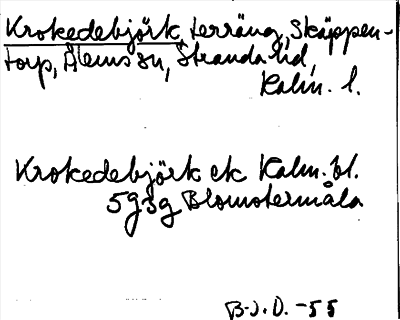 Krokedebjörk, terräng, Skäppen-
torp, Ålems sn, Stranda hd,
Kalm. l.
Krokedebjörk ek Kalm. bl.
5g3g Blomstermåla
B.J.O. -55